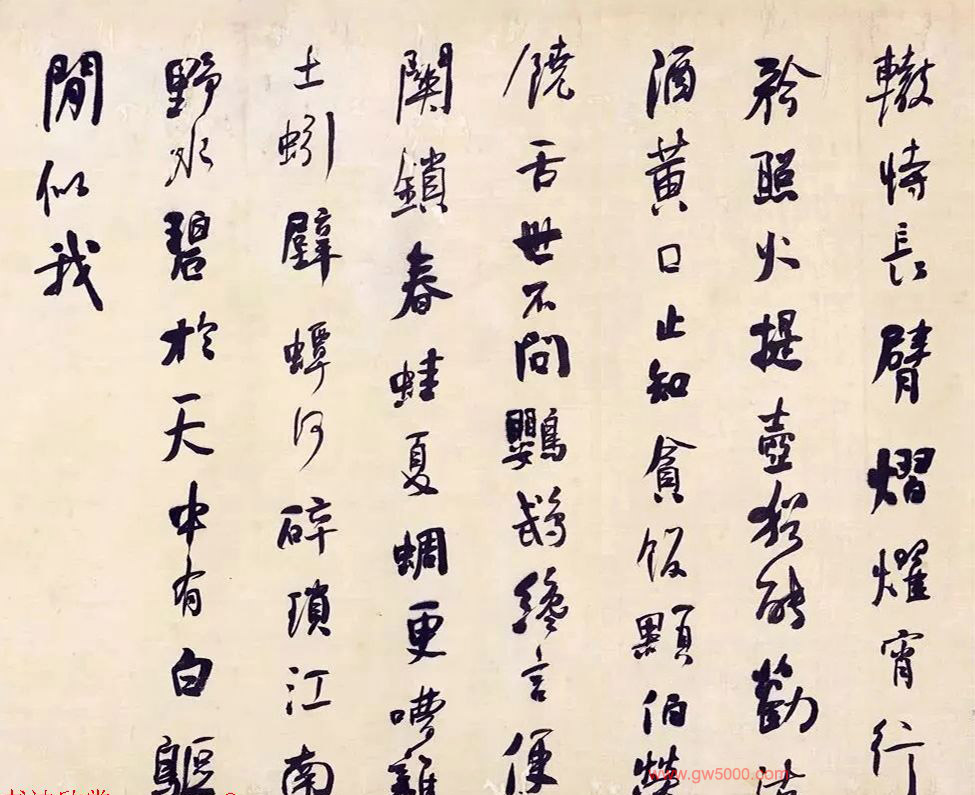 轍恃長臂熠燿宵行
矜照火提壺猶能勸沽
酒黃口止知貪飯顆伯勞
饒舌世不問鸚鵡纔言便
關鎖春蛙夏蜩更嘈雜
土蚓壁蟫何碎瑣江南
野水碧於天中有白鷗
閒似我
www.gw5000.com